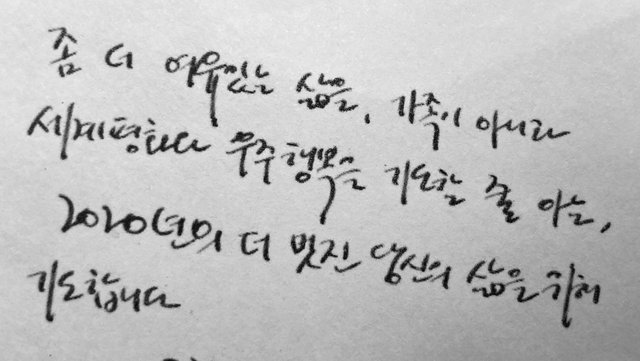 좀 더 여유있는 삶을, 가족이 아니라
세계평화다 우주행복을 기도할 줄 아는,
2020년의 더 멋진 당신의 삶을 위해
기도합니다